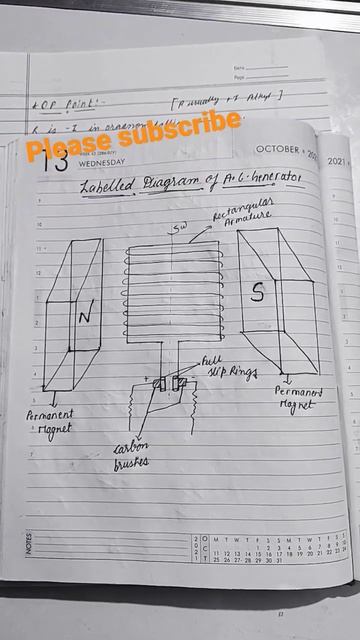 Name
Page
* OP Point:-
[R usually +I Alkyl]
R is -I in
Please subscribe
13
WEDNESDAY
OCTOBER •
2021 •
Labelled Diagram of A.C. Generator
Rectangular
Armature
SW
N
S
Full
Slip Rings
+
Permanent
Magnet
Permanent
Magnet
Carbon
brushes
NOTES
2021 OCT
M T W T F S S M T W T F S S
1 2 3 4 5 6 7 8 9 10
11 12 13 14 15 16 17 18 19 20 21 22 23 24
25 26 27 28 29 30 31